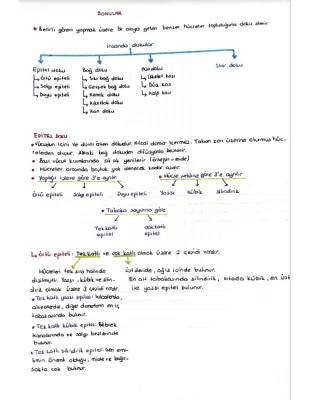 DOKULAR
• Belirli görevi yapmak üzere bir araya gelen benzer hücreler topluluğuna doku denir.
insanda dokular
Epitel doku Bağ doku Kas doku Sinir doku
Örtü epiteli Sıkı bağ doku İskelet kası
Salgı epiteli Gevşek bağ doku Düz kas
Duyu epiteli Kemik doku Kalp kası
Kıkırdak doku
Kan doku
EPİTEL DOKU
• Vücudun içini ve dışını örten dokudur. Kılcal damar içermez. Taban zarı üzerine oturmuş hüc-
relerden oluşur. Alttaki bağ dokudan difüzyonla beslenir.
• Bazı vücut kısımlarında sık sık yenilenir (örneğin mide)
• Hücreler arasında boşluk yok denecek kadar azdır.
• Yaptığı işlere göre 3'e ayrılır • Hücre şekline göre 3'e ayrılır
Örtü epiteli Salgı epiteli Duyu epiteli Yassı Kübik silindirik
• Tabaka sayısına göre
Tek katlı epitel çok katlı epitel
Örtü epiteli: Tek katlı ve çok katlı olmak üzere 2 çeşidi vardır.
Hücreleri tek sıra halinde
dizilmiştir. Yassı, kübik ve silin-
dirik olmak üzere 3 çeşidi vardır.
• Tek katlı yassı epitel: kılcallarda,
alveollerde, diğer damarların en iç
tabakasında bulunur.
• Tek katlı kübik epitel: Böbrek
kanallarında ve salgı bezlerinde
bulunur.
• Tek katlı silindirik epitel: Geri emi-
limin önemli olduğu, mide ve bağır-
sakta çok bulunur.
Üst deride, ağız içinde bulunur.
En alt tabakasında silindirik, ortada kübik, en üst
te yassı epitel bulunur.